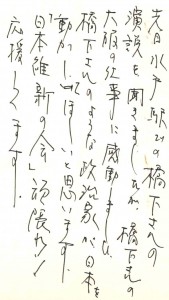 先日水戸駅での橋下さんの
演説を聞きましたが、橋下さんの
大阪の仕事に感動しました。
橋下さんのような政治家が日本を
動かしてほしいと思います。
「日本維新の会」頑張れ!
応援してます。